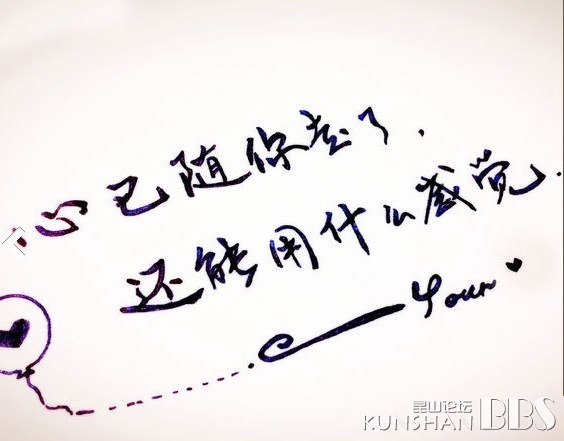 心已随你去了.
还能用什么感觉.
Your
昆山论坛
KUNSHAN BBS